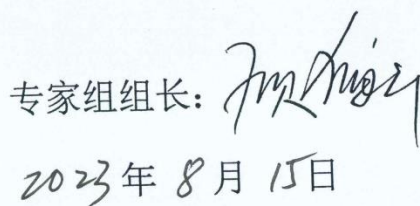 专家组组长：
2023年8月15日